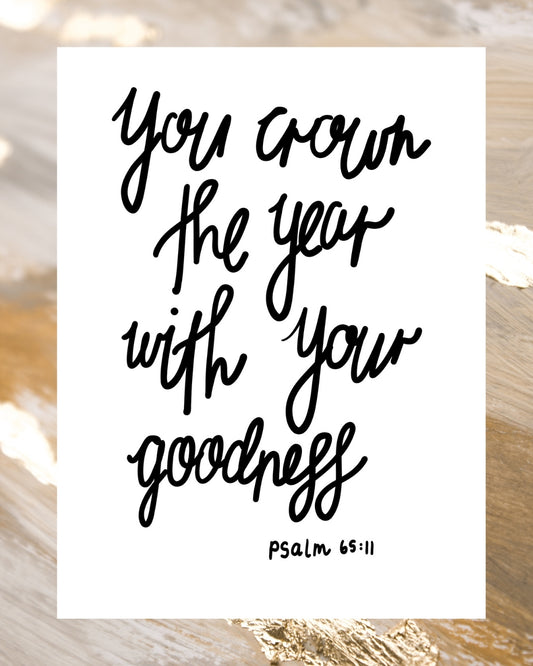 You crown
the year
with your
goodness
Psalm 65:11